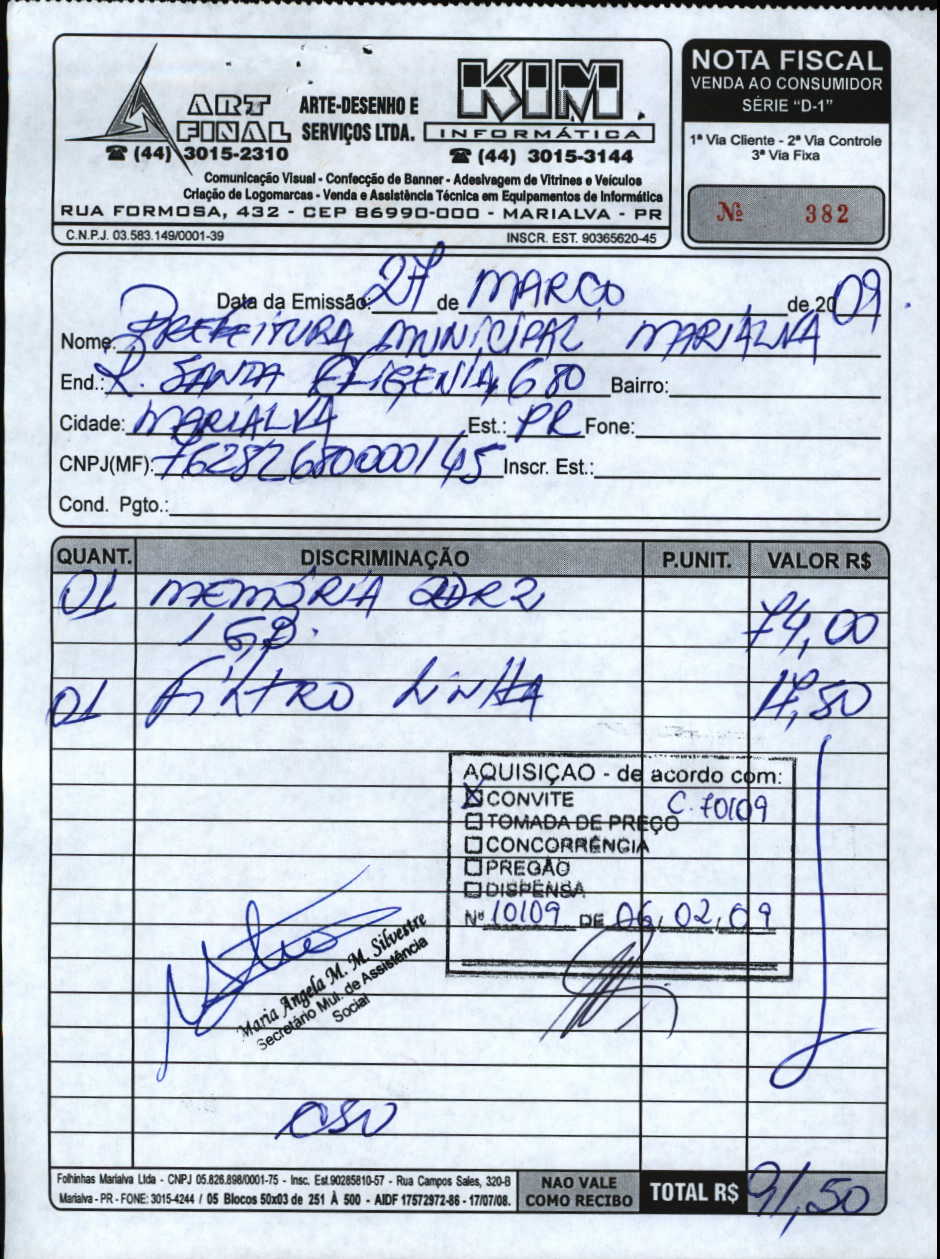 ART FINAL
ARTE-DESENHO E SERVIÇOS LTDA.
KIM
INFORMÁTICA
☎ (44) 3015-2310
☎ (44) 3015-3144
Comunicação Visual - Confecção de Banner - Adesivagem de Vitrines e Veículos
Criação de Logomarcas - Venda e Assistência Técnica em Equipamentos de Informática
RUA FORMOSA, 432 - CEP 86990-000 - MARIALVA - PR
C.N.P.J. 03.583.149/0001-39 INSCR. EST. 90365620-45
NOTA FISCAL
VENDA AO CONSUMIDOR
SÉRIE "D-1"
1ª Via Cliente - 2ª Via Controle
3ª Via Fixa
Nº 382
Data da Emissão: 27 de MARÇO de 2009
Nome: PREFEITURA MUNICIPAL MARIALVA
End.: R. SANTA EFIGENIA, 680 Bairro:
Cidade: MARIALVA Est.: PR Fone:
CNPJ(MF): 76282680000/45 Inscr. Est.:
Cond. Pgto.:
QUANT. DISCRIMINAÇÃO P.UNIT. VALOR R$
01 MEMÓRIA DDR2
1GB. 74,00
01 FILTRO LINHA 17,50
AQUISIÇAO - de acordo com:
☒ CONVITE C. 10109
☐ TOMADA DE PREÇO
☐ CONCORRÊNCIA
☐ PREGÃO
☐ DISPENSA
Nº 10109 DE 06, 02, 09
Maria Angela M. M. Silvestre
Secretário Mun. de Assistência
Social
Folhinhas Marialva Ltda - CNPJ 05.826.898/0001-75 - Insc. Est.90285810-57 - Rua Campos Sales, 320-B
Marialva - PR - FONE: 3015-4244 / 05 Blocos 50x03 de 251 À 500 - AIDF 17572972-86 - 17/07/08.
NAO VALE
COMO RECIBO
TOTAL R$ 91,50